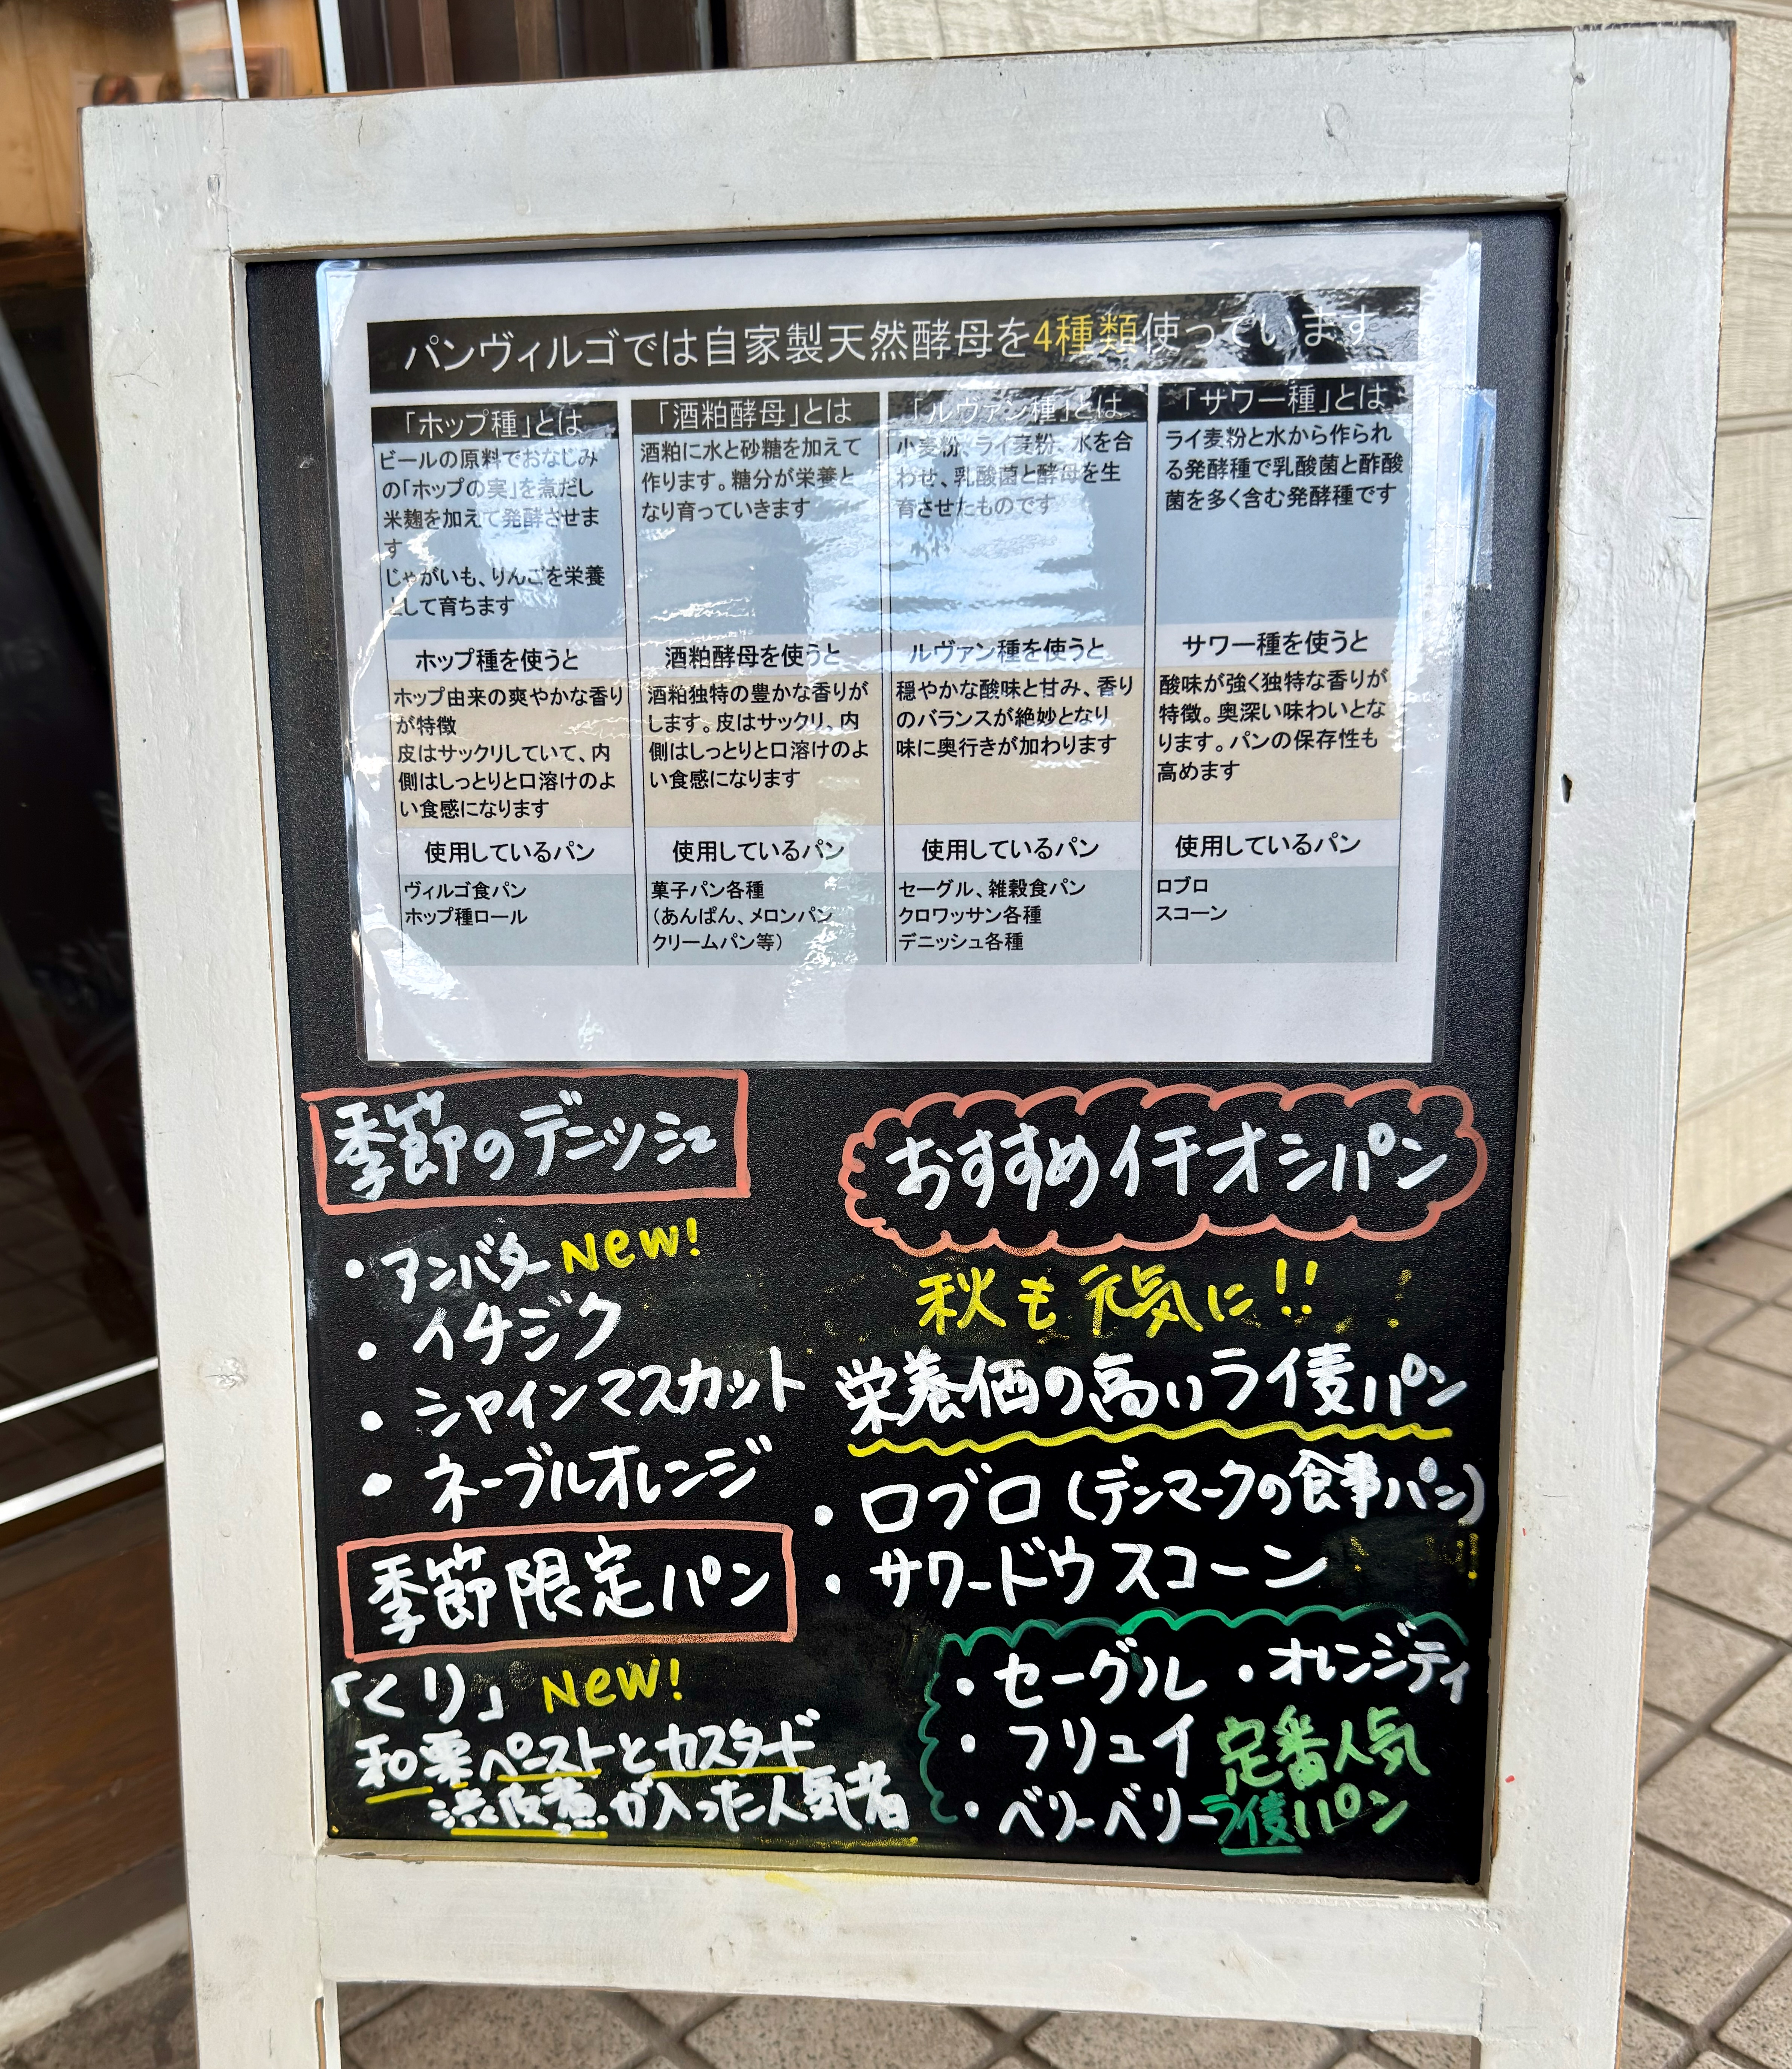 パンヴィルゴでは自家製天然酵母を4種類使っています
「ホップ種」とは
ビールの原料でおなじみ
の「ホップの実」を煮だし
米麹を加えて発酵させま
す
じゃがいも、りんごを栄養
として育ちます
ホップ種を使うと
ホップ由来の爽やかな香り
が特徴
皮はサックリしていて、内
側はしっとりと口溶けのよ
い食感になります
使用しているパン
ヴィルゴ食パン
ホップ種ロール
「酒粕酵母」とは
酒粕に水と砂糖を加えて
作ります。糖分が栄養と
なり育っていきます
酒粕酵母を使うと
酒粕独特の豊かな香りが
します。皮はサックリ、内
側はしっとりと口溶けのよ
い食感になります
使用しているパン
菓子パン各種
（あんぱん、メロンパン
クリームパン等）
「ルヴァン種」とは
小麦粉、ライ麦粉、水を合
わせ、乳酸菌と酵母を生
育させたものです
ルヴァン種を使うと
穏やかな酸味と甘み、香り
のバランスが絶妙となり
味に奥行きが加わります
使用しているパン
セーグル、雑穀食パン
クロワッサン各種
デニッシュ各種
「サワー種」とは
ライ麦粉と水から作られ
る発酵種で乳酸菌と酢酸
菌を多く含む発酵種です
サワー種を使うと
酸味が強く独特な香りが
特徴。奥深い味わいとな
ります。パンの保存性も
高めます
使用しているパン
ロブロ
スコーン
季節のデニッシュ
・アンバター New!
・イチジク
・シャインマスカット
・ネーブルオレンジ
季節限定パン
「くり」 New!
和栗ペーストとカスタード
渋皮煮が入った人気者
おすすめイチオシパン
秋も元気に!!
栄養価の高いライ麦パン
・ロブロ（デンマークの食事パン）
・サワードウスコーン
・セーグル ・オレンジティ
・フリュイ 定番人気
・ベリーベリー ライ麦パン